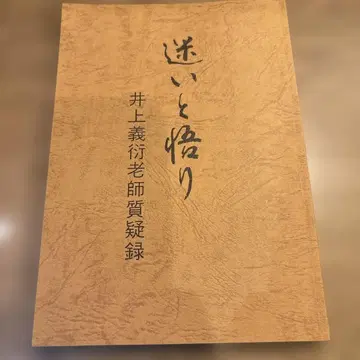 迷いと悟り
井上義衍老師質疑録